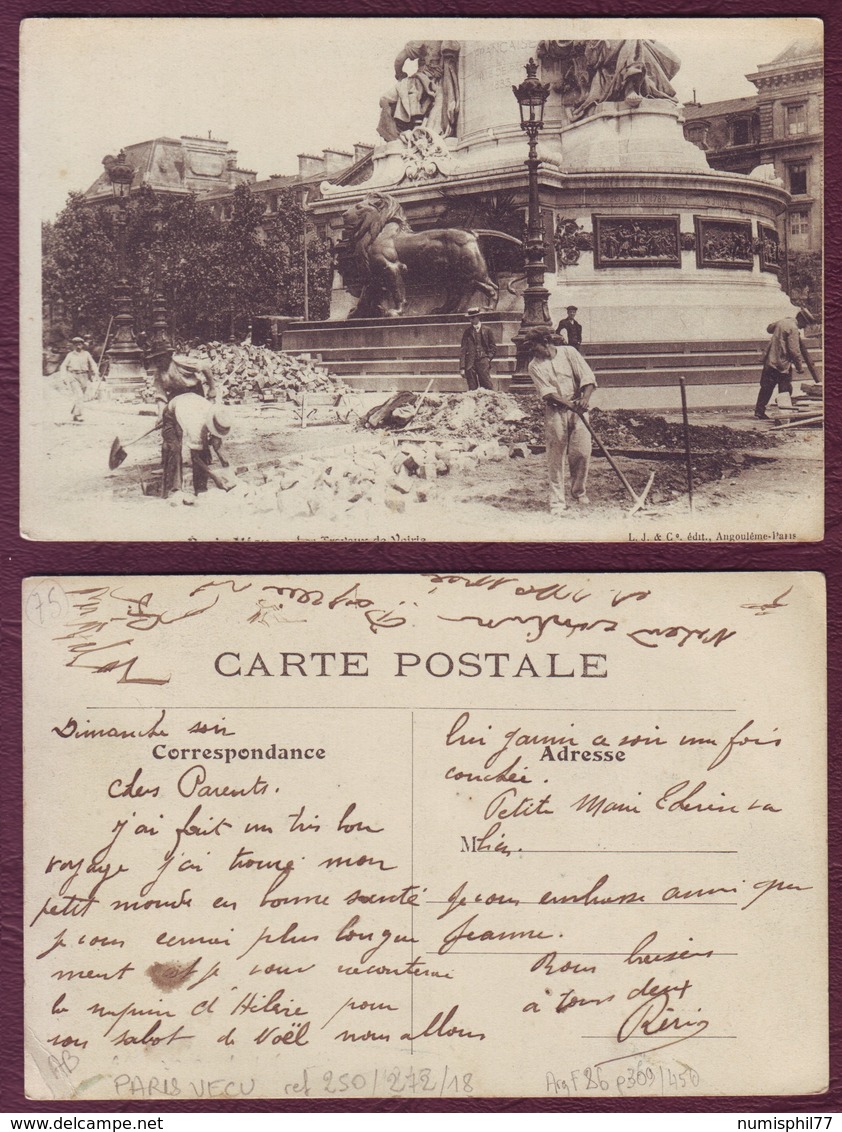 FRANÇAISE
Les Travaux de Voirie
L. J. & Cie. édit., Angoulême-Paris
75
CARTE POSTALE
Dimanche soir
Correspondance
Chers Parents.
j'ai fait un très bon
voyage j'ai trouvé mon
petit monde en bonne santé
je vous plus longue
ment et je vous raconterai
la surprise d'Hélène pour
son sabot de Noël nous allons
lui ce soir une fois
Adresse
couchée.
Petite Marie va
M
bien.
je vous embrasse ainsi que
Jeanne.
Bons baisers
à tous deux
AB
PARIS VECU ref 250/272/18
Arg F 86 p309/450
numisphil77